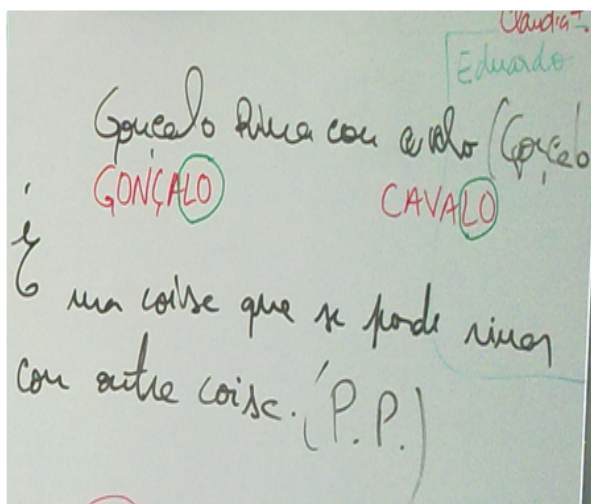 Claudia T.
Eduardo
Gonçalo rima com cavalo (Gonçalo
GONÇALO CAVALO
É uma coisa que se pode rimar
com outra coisa. (P.P.)